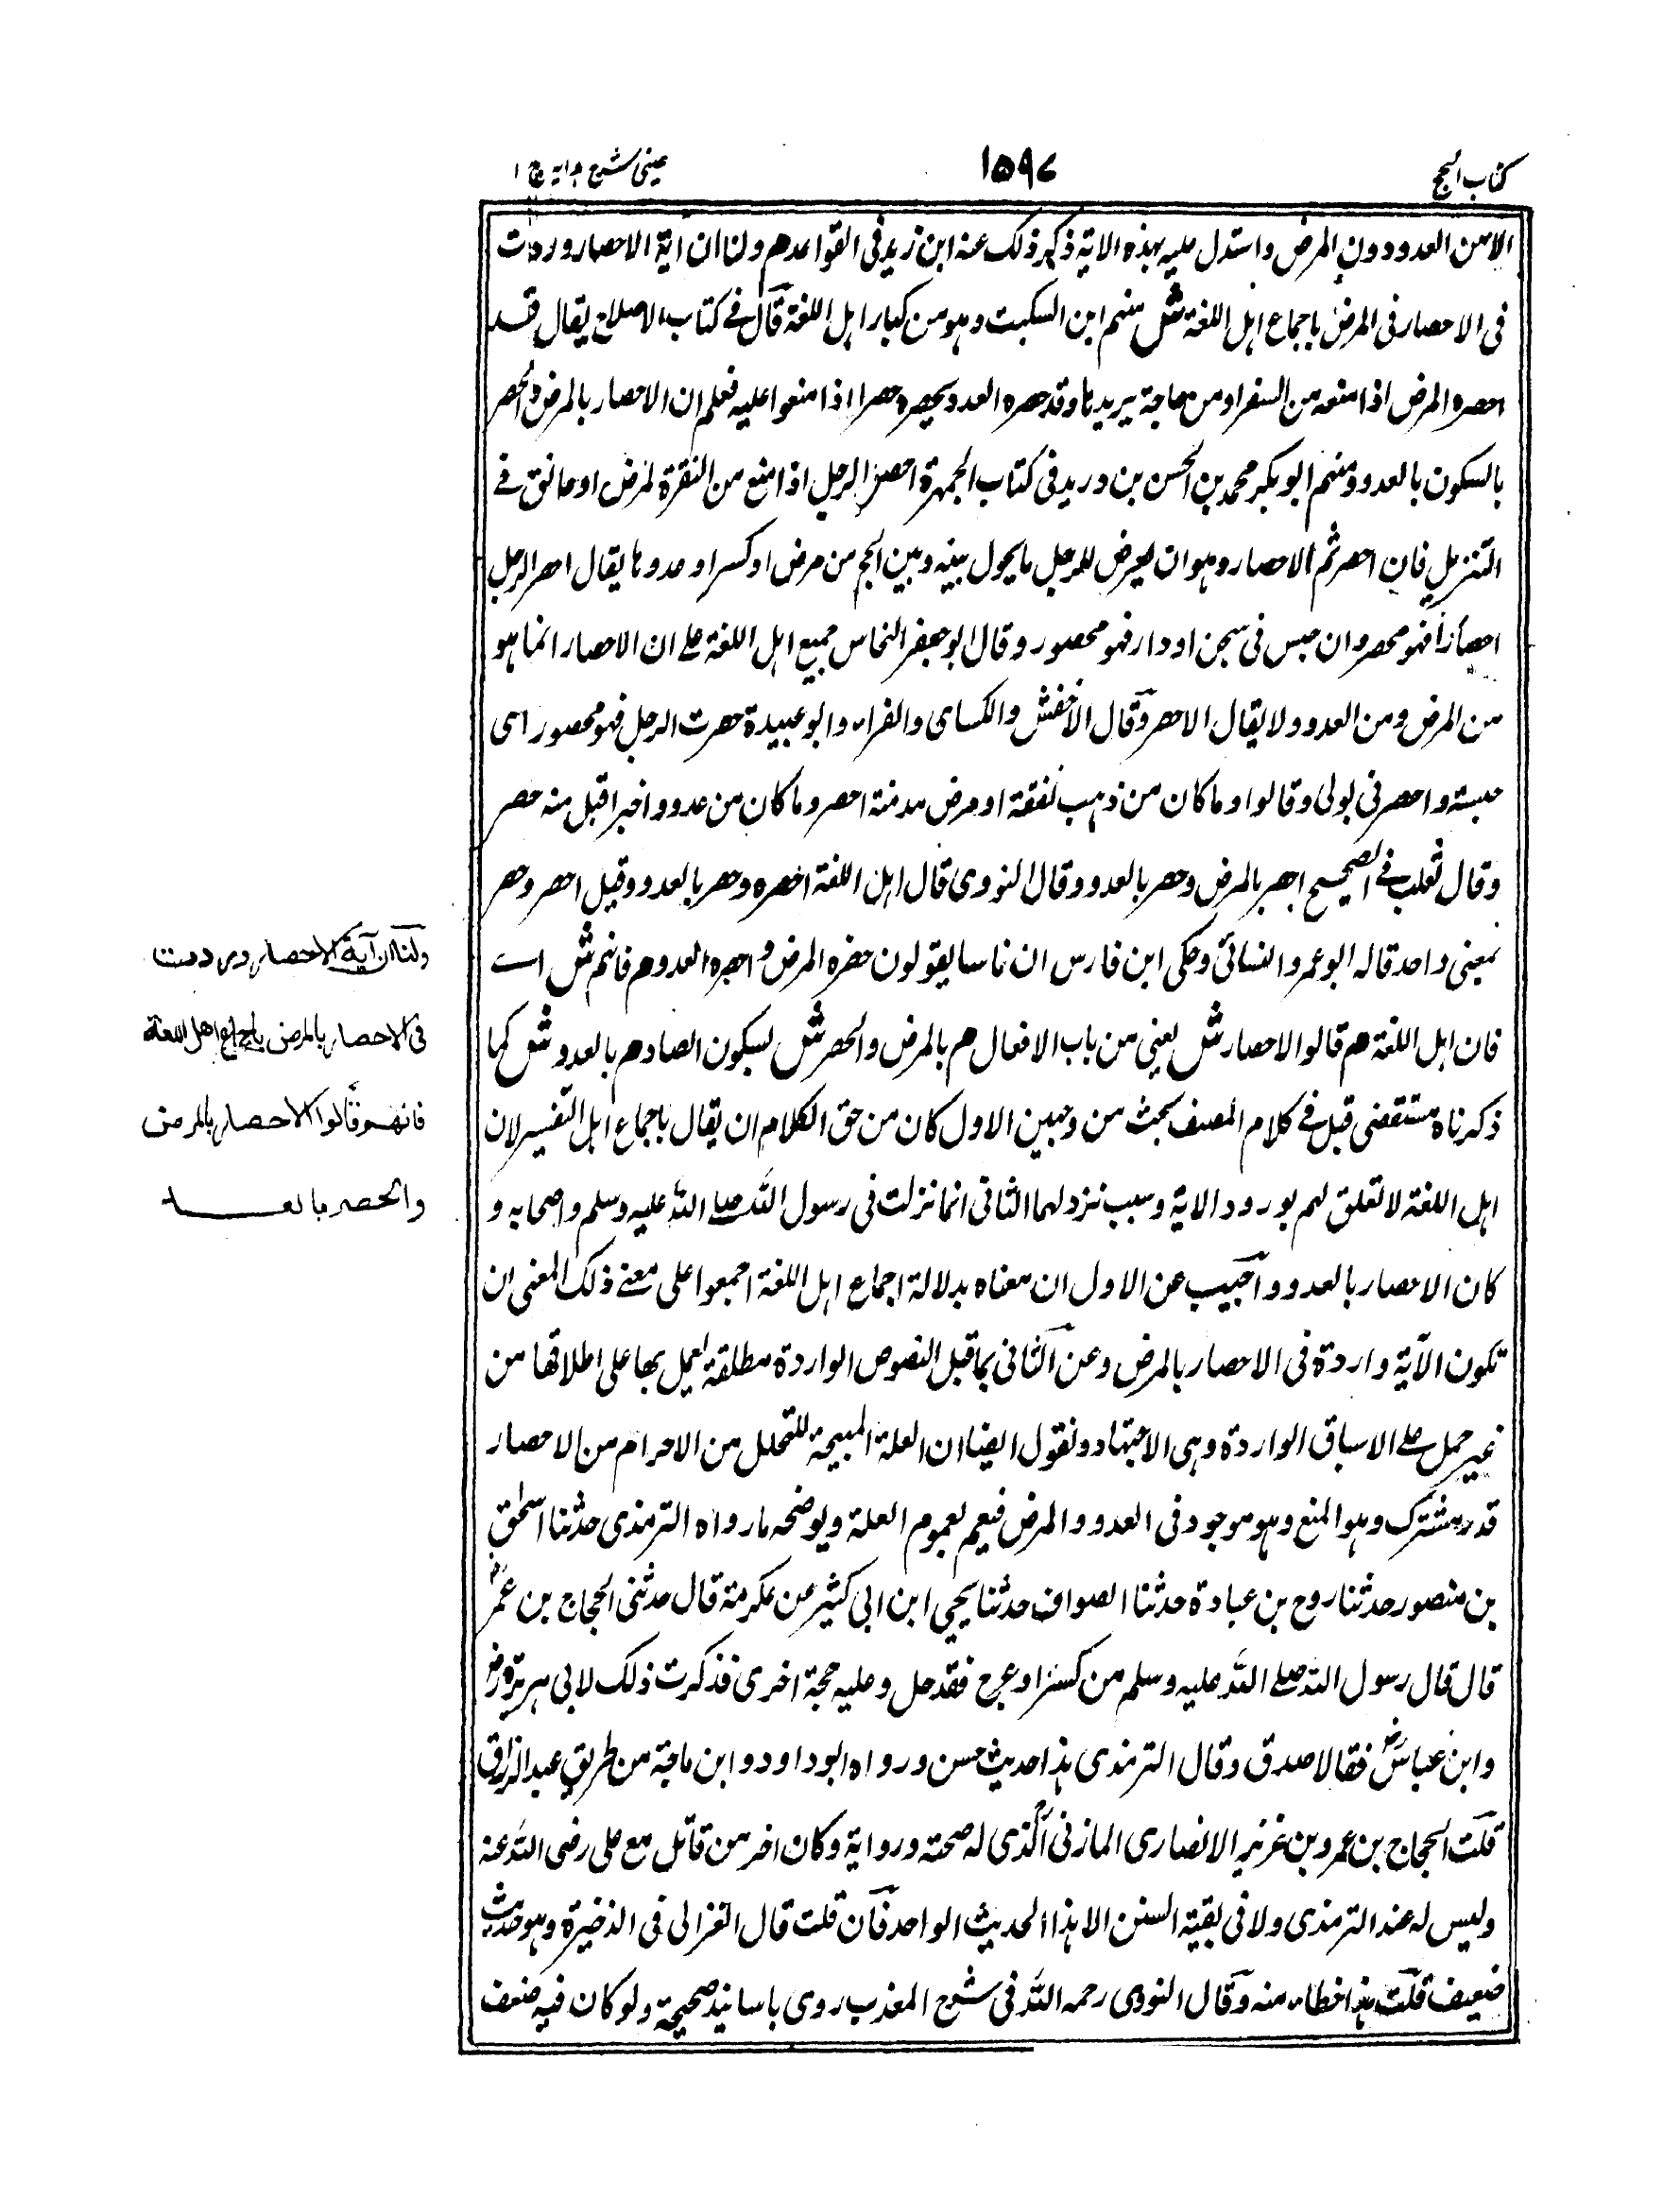 كتاب الحج
١٥٩٧
عينى شرح هدايه ج ١
الا من العدو دون المرض واستدل عليه بهذه الاية ذكر ذلك عنه ابن زيد فى القواعد م ولنا ان آية الاحصار وردت
فى الاحصار فى المرض باجماع اهل اللغة ش منهم ابن السكيت وهو من كبار اهل اللغة قال فى كتاب الاصلاح يقال قد
احصره المرض اذا منعه من السفر او من حاجة يريدها وقد حصره العدو يحصره حصرا اذا منعوا عليه فعلم ان الاحصار بالمرض والحصر
بالسكون بالعدو ومنهم ابو بكر محمد بن الحسن بن دريد فى كتاب الجمهرة احصر الرجل اذا منع من النقرة لمرض او عائق فى
التنزيل فان احصرتم الاحصار وهو ان يعرض للرجل ما يحول بينه وبين الحج من مرض او كسر او عدو ما يقال احصر الرجل
احصارا فهو محصر وان حبس فى سجن او دار فهو محصور وقال ابو جعفر النحاس جميع اهل اللغة على ان الاحصار انما هو
من المرض ومن العدو ولا يقال الا حصر وقال الاخفش والكسائى والفراء وابو عبيدة حصرت الرجل فهو محصور اى
حبسته واحصر فى بولى وقالوا وما كان من ذهب نفقة او مرض مدنفة احصر وما كان من عدو واخبر اقبل منه حصر
وقال ثعلب فى الصحيح احصر بالمرض وحصر بالعدو وقال النووى قال اهل اللغة احصره وحصر بالعدو وقيل احصر وحصر
بمعنى واحد قاله ابو عمرو والنسائى وحكى ابن فارس ان ناسا يقولون حضره المرض واحصره العدو م فانهم ش اے
فان اهل اللغة م قالوا الاحصار ش يعنى من باب الافعال م بالمرض والحصر ش بسكون الصاد م بالعدو ش كما
ذكرناه مستقضى قبل فى كلام المصنف بحث من وجهين الاول كان من حق الكلام ان يقال باجماع اهل التفسير لان
اهل اللغة لا تعلق لهم بورود الاية وسبب نزولها الثانى انما نزلت فى رسول الله صلى الله عليه وسلم واصحابه و
كان الاحصار بالعدو واجيب عن الاول ان معناه بدلالة اجماع اهل اللغة اجمعوا على معنے ذلك المعنى ان
تكون الآية واردة فى الاحصار بالمرض وعن الثانى بما قبل النصوص الواردة مطلقة يعمل بها على اطلاقها من
غير حمل على الاسباق الواردة وهى الاجتهاد ونقول ايضا ان العلة المبيحة للتحلل من الاحرام من الاحصار
قدر مشترك وهو المنع وهو موجود فى العدو والمرض فيعم لعموم العلة ويوضحه ما رواه الترمذى حدثنا اسحق
بن منصور حدثنا روح بن عبادة حدثنا الصواف حدثنا يحيى ابن ابى كثير عن عكرمة قال حدثنى الحجاج بن عمرو
قال قال رسول الله صلى الله عليه وسلم من كسر او عرج فقد حل وعليه حجة اخرى فذكرت ذلك لابى هريرة رض
وابن عباس رض فقالا صدق وقال الترمذى هذا حديث حسن ورواه ابو داود وابن ماجة من طريق عبد الرزاق
قلت الحجاج بن عمرو بن غزية الانصارى المازنى الذى له صحته ورواية وكان اخر من قاتل مع على رضى الله عنه
وليس له عند الترمذى ولا فى بقية السنن الا هذا الحديث الواحد فان قلت قال الغزالى فى الذخيرة وهو حديث
ضعيف قلت هذا خطاء منه وقال النووى رحمه الله فى شرح المهذب روى باسانيد صحيحة ولو كان فيه ضعف
ولنا ان آية الاحصار وردت
فى الاحصار بالمرض باجماع اهل اللغة
فانهم قالوا الاحصار بالمرض
والحصر بالعد